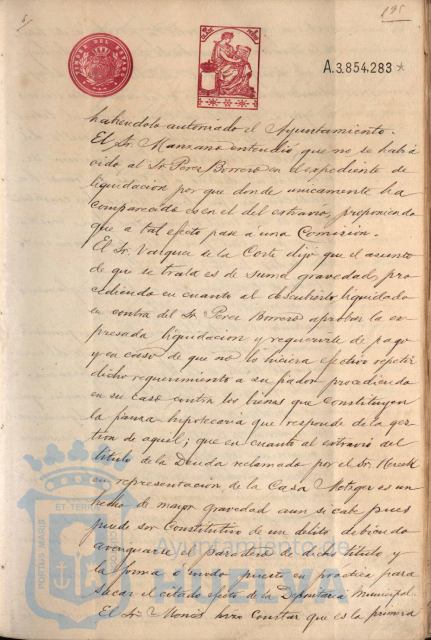 195
A.3.854.283
habiendolo autorizado el Ayuntamiento.
El Sr. Manzano entendió que no se habia
oido al Sr Perez Borrero en el expediente de
liquidacion por que donde unicamente ha
comparecido es en el del estravio, proponiendo
que a tal efecto pase a una Comision.
El Sr. Vazquez de la Corte dijo que el asunto
de que se trata es de suma gravedad, pro
cediendo en cuanto al descubierto liquidado
en contra del Sr Perez Borrero aprobar la es-
presada liquidacion y requerirle de pago
y en caso de que no lo hiciera efectivo repetir
dicho requerimiento a su fiador procediendo
en su caso contra los bienes que constituyen
la fianza hipotecaria que responde de la ges
tion de aquel; que en cuanto al estravio del
titulo de la Deuda reclamado por el Sr.
en representacion de la Casa es un
hecho de mayor gravedad aun si cabe pues
puede ser Constitutivo de un delito debiendo
averiguarse el paradero de dicho titulo y
la forma o modo puesto en practica para
sacar el citado efecto de la Depositaria Municipal.
El Sr Monis hizo constar que es la primera
PORTUS MARIS ET TERRAE
Ayuntamiento de
HUELVA